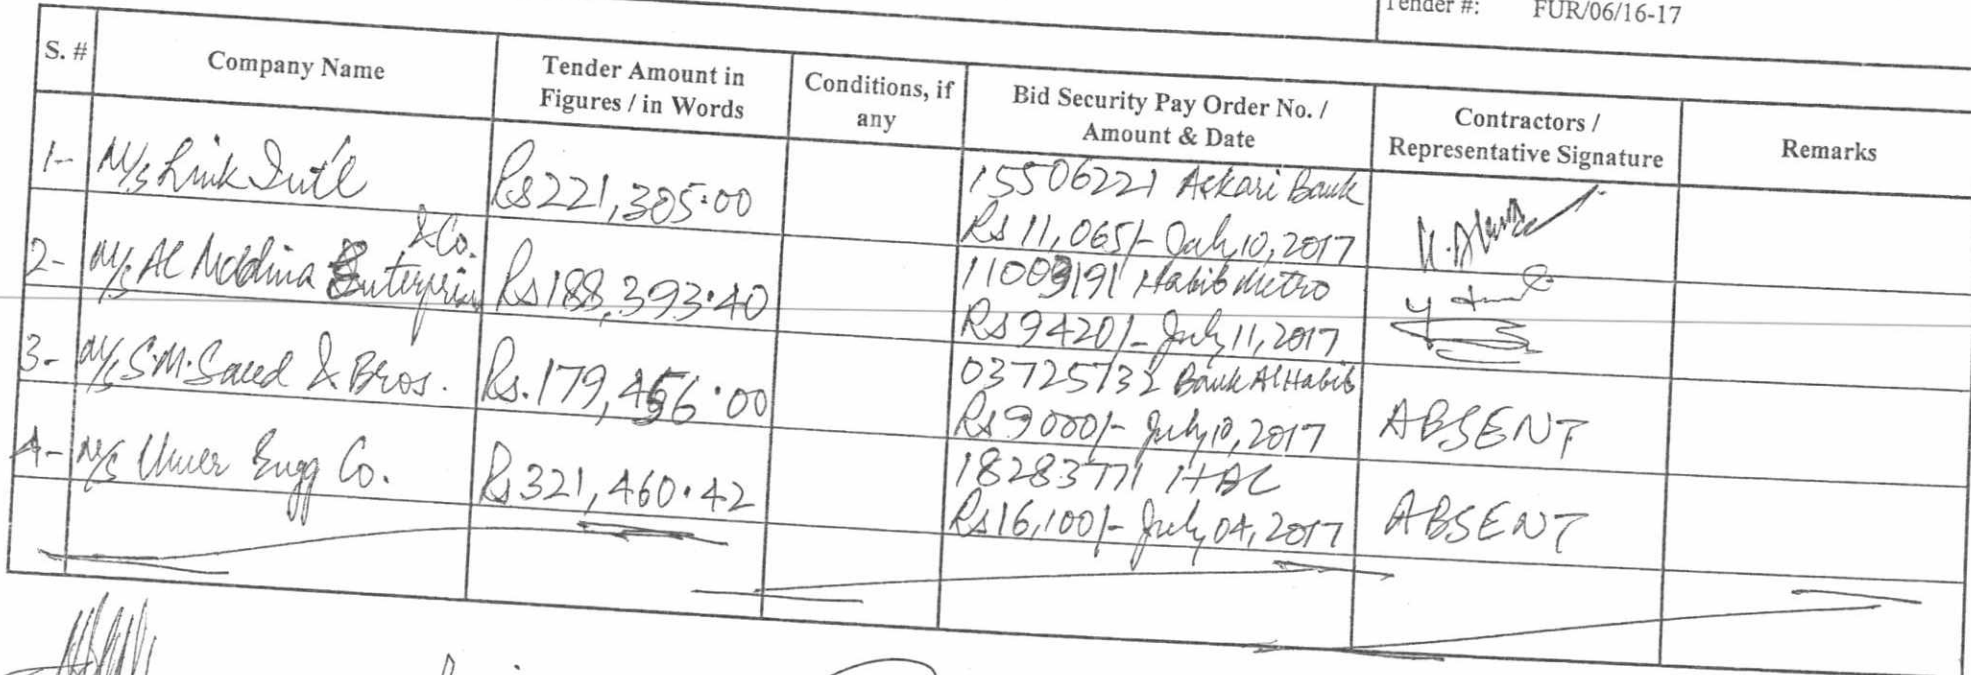 Tender #: FUR/06/16-17
S. # Company Name Tender Amount in Figures / in Words Conditions, if any Bid Security Pay Order No. / Amount & Date Contractors / Representative Signature Remarks
1- M/s Link Int'l Rs 221,305.00 15506221 Askari Bank
Rs 11,065/- July 10, 2017
2- M/s Al Maddina Enterprise & Co. Rs 188,393.40 11003191 Habib Metro
Rs 9420/- July 11, 2017
3- M/s S.M. Saeed & Bros. Rs. 179,456.00 03725732 Bank Al Habib
Rs 9000/- July 10, 2017 ABSENT
4- M/s Umer Engg Co. Rs 321,460.42 18283771 HBL
Rs 16,100/- July 04, 2017 ABSENT